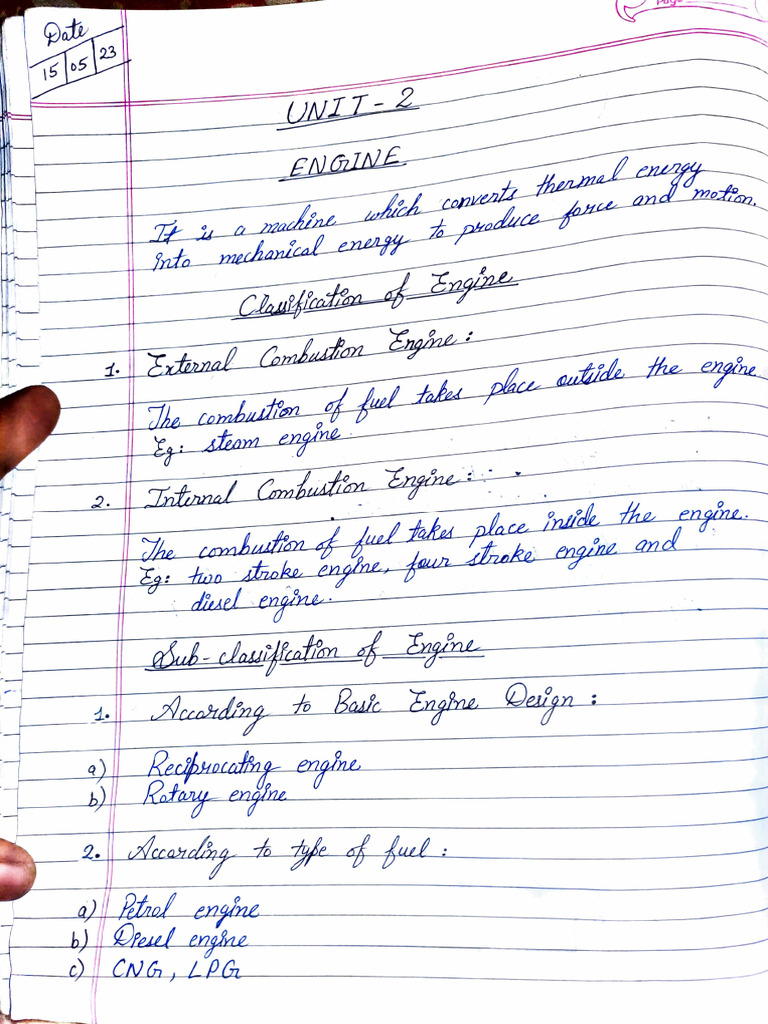 Page
Date
15 05 23
UNIT-2
ENGINE
It is a machine which converts thermal energy
into mechanical energy to produce force and motion.
Classification of Engine
1. External Combustion Engine:
The combustion of fuel takes place outside the engine
Eg: steam engine
2. Internal Combustion Engine:
The combustion of fuel takes place inside the engine.
Eg: two stroke engine, four stroke engine and
diesel engine.
Sub-classification of Engine
1. According to Basic Engine Design:
a) Reciprocating engine
b) Rotary engine
2. According to type of fuel:
a) Petrol engine
b) Diesel engine
c) CNG, LPG